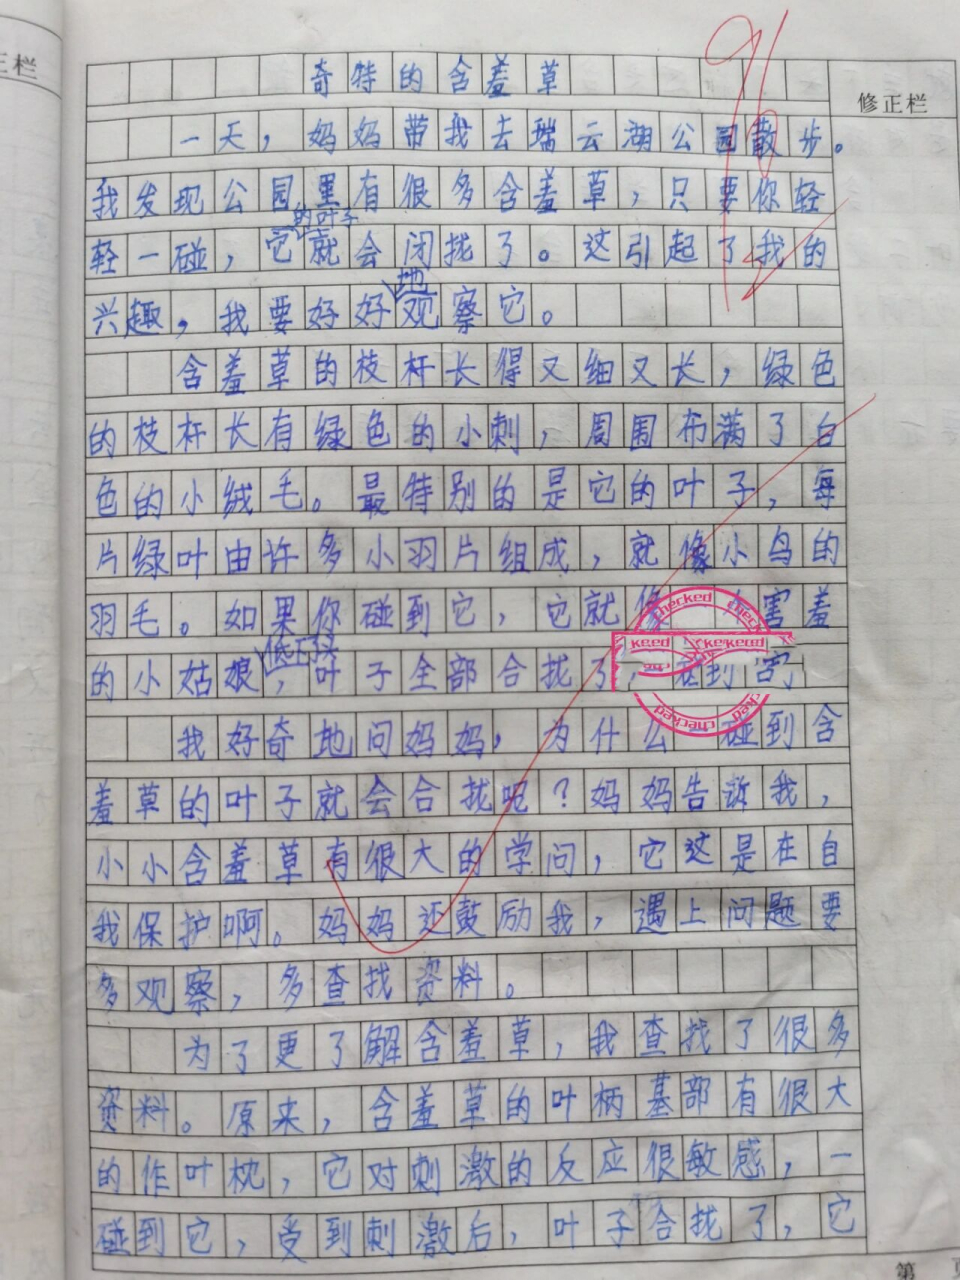 正栏
修正栏
奇特的含羞草
一天，妈妈带我去瑞云湖公园散步。
我发现公园里有很多含羞草，只要你轻
的叶子
轻一碰，它就会闭拢了。这引起了我的
地
兴趣，我要好好观察它。
含羞草的枝杆长得又细又长，绿色
的枝杆长有绿色的小刺，周围布满了白
色的小绒毛。最特别的是它的叶子，每
片绿叶由许多小羽片组成，就像小鸟的
羽毛。如果你碰到它，它就像 害羞
低下头
的小姑娘，叶子全部合拢了，
checked
我好奇地问妈妈，为什么一碰到含
羞草的叶子就会合拢呢？妈妈告诉我，
小小含羞草有很大的学问，它这是在自
我保护啊。妈妈还鼓励我，遇上问题要
多观察，多查找资料。
为了更了解含羞草，我查找了很多
资料。原来，含羞草的叶柄基部有很大
的作叶枕，它对刺激的反应很敏感，一
碰到它，受到刺激后，叶子合拢了，它
第 页